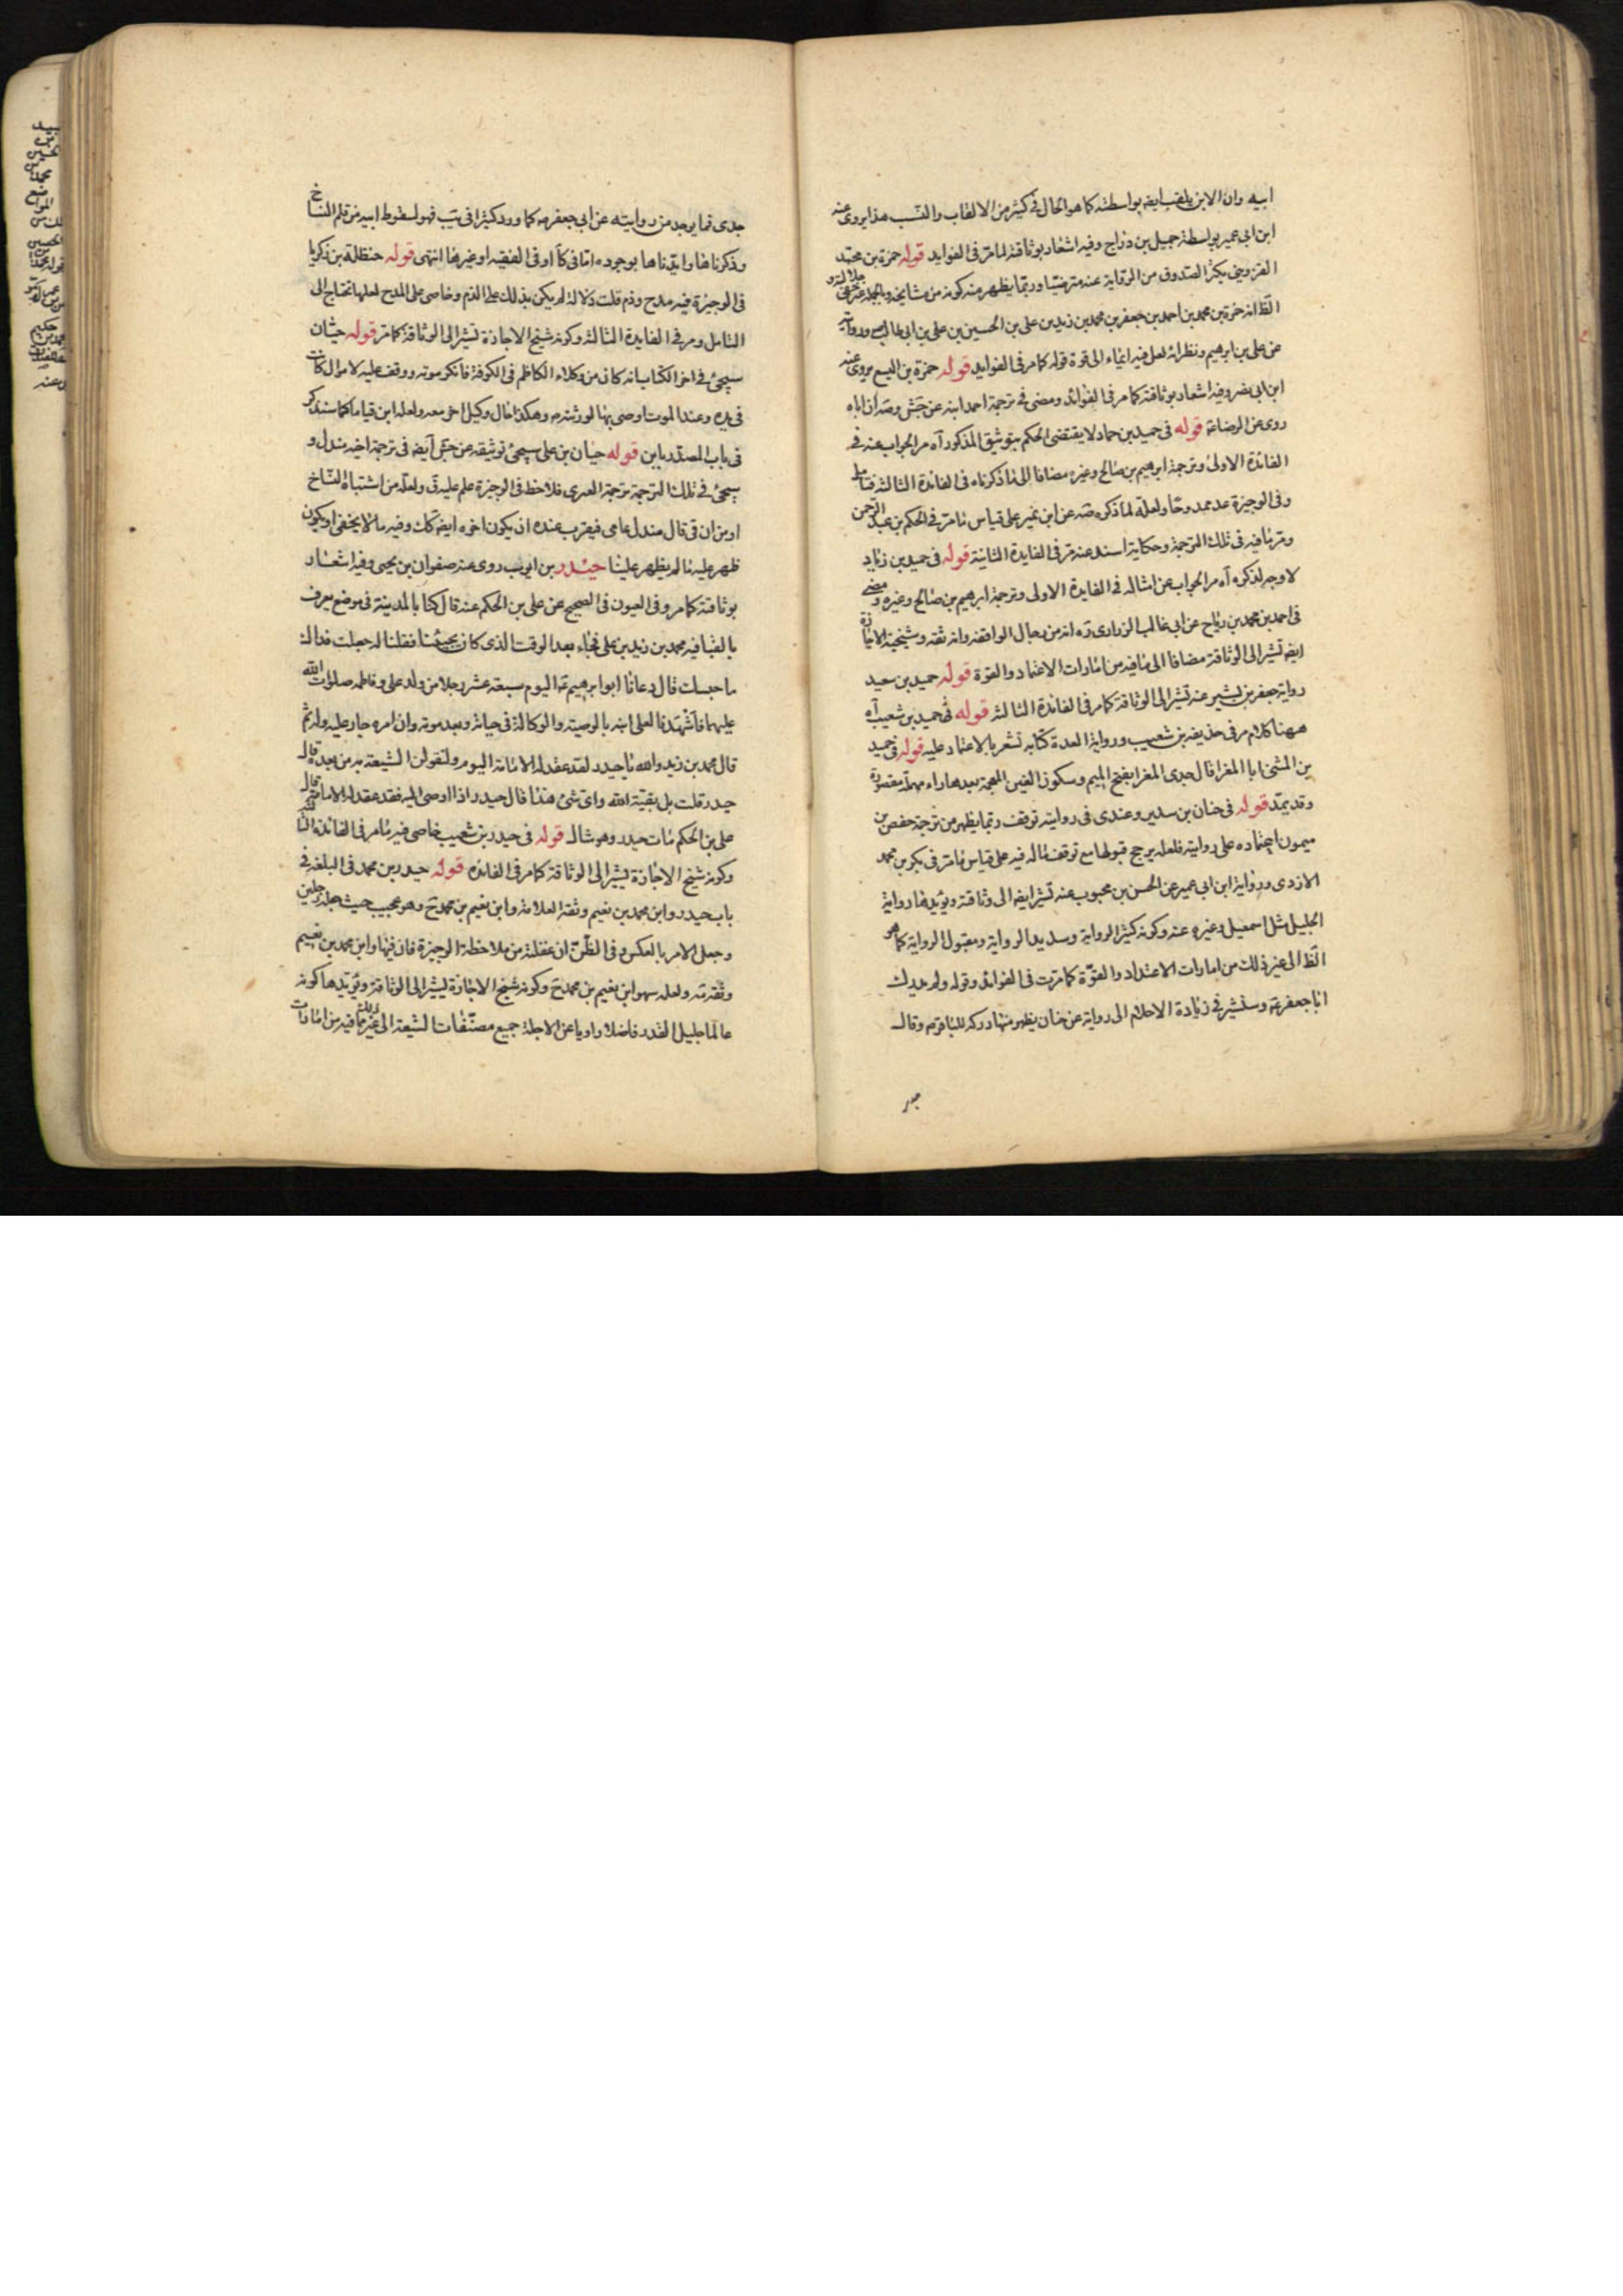 ابيه وان الابن يلقب ايض بواسطته كما هو الحال في كثير من الالقاب والنسب هذا يروى عنه
ابن ابى عمير بواسطة جميل بن دراج وفيه اشعار بوثاقته لما مر فى الفوايد قوله حمزة بن محمد
القزوينى يكثر الصدوق من الرواية عنه مترضيا وربما يظهر منه كونه من مشايخه وبالجملة
الظ انه حمزة بن محمد بن احمد بن جعفر بن محمد بن زيد بن على بن الحسين بن على بن ابى طالب ع وروايته
عن على بن ابرهيم ونظرائه لعل فيه ايماء الى قوة قوله كما مر فى الفوايد قوله حمزة بن اليسع يروى عنه
ابن ابى نصر وفيه اشعار بوثاقته كما مر فى الفوائد ومضى فى ترجمة احمد ابنه عن جش وصه ان اباه
روى عن الرضا ع قوله فى حميد بن حماد لا يقتضى الحكم بتوثيق المذكور آه مر الجواب عنه فى
الفائدة الاولى وترجمة ابرهيم بن صالح وغيره مضافا الى ما ذكرناه فى الفائدة الثالثة فتامل
وفى الوجيزة عد ممدوحا ولعله لما ذكره صه عن ابن نمير على قياس ما مر فى الحكم بن عبد الرحمن
ومر ما فيه فى تلك الترجمة وحكاية اسند عنه مر فى الفايدة الثانية قوله فى حميد بن زياد
لا وجه لذكره آه مر الجواب عن امثاله فى الفايدة الاولى وترجمة ابرهيم بن صالح وغيره ومضى
فى احمد بن محمد بن رباح عن ابى غالب الزرارى ره انه من رجال الواقفة وانه ثقة وشيخية الاجازة
ايض تشير الى الوثاقة مضافا الى ما فيه من امارات الاعتماد والقوة قوله حميد بن سعيد
رواية جعفر بن بشير عنه تشير الى الوثاقة كما مر فى الفائدة الثالثة قوله فى حميد بن شعيب آه
ههنا كلام مر فى حذيفة بن شعيب ورواية العدة كتابه تشعر بالاعتماد عليه قوله فى حميد
بن المثنى ابا المغرا قال جدى المغرا بفتح الميم وسكون الغين المعجمة بعدها راء مهملة مقصورة
وقد يمد قوله فى حنان بن سدير وعندى فى روايته توقف ربما يظهر من ترجمة حفص بن
ميمون اعتماده على روايته فلعله يرجح قبولها مع توقف ما له فيه على قياس ما مر فى بكر بن محمد
الازدى ورواية ابن ابى عمير عن الحسن بن محبوب عنه تشير ايض الى وثاقته ويؤيدها رواية
الجليل مثل اسمعيل وغيره عنه وكونه كثير الرواية وسديد الرواية ومقبول الرواية كما هو
الظ الى غير ذلك من امارات الاعتداد والقوة كما مرت فى الفوائد وقوله ولم يدرك
ابا جعفر ع وسنشير فى زيادة الاحلام الى رواية عن حنان يظهر منها دركه للباقر ع وقال
جدى فما يوجد من روايته عن ابى جعفر ع كما ورد كثيرا فى يب فهو لسقوط ابيه من قلم النساخ
وذكرناها وايدناها بوجوده اما فى كا او فى الفقيه او غيرها انتهى قوله حنظلة بن زكريا
فى الوجيزة فيه مدح وذم قلت دلالة لم يكن بذلك على الذم وخاصى على المدح لعلها تحتاج الى
التامل ومر فى الفايدة الثالثة وكونه شيخ الاجازة تشير الى الوثاقة كما مر قوله حيان
سيجئ فى اخر الكتاب انه كان من وكلاء الكاظم فى الكوفة فانكر موته ووقف عليه لاموال كانت
فى يده وعند الموت اوصى بها لورثته ع وهكذا حال وكيل اخر معه ولعله ابن قياما كما سنذكر
فى باب المصدر بابن قوله حيان بن على سيجئ توثيقه عن جش ايض فى ترجمة اخيه مندل و
سيجئ فى تلك الترجمة ترجمة العمرى فلاحظ فى الوجيزة علم عليه ق ولعله من اشتباه النساخ
او من ان قى قال مندل عامى فيقرب عنده ان يكون اخوه ايض كك وفيه ما لا يخفى او يكون
ظهر عليه ما لم يظهر علينا حيدر بن ايوب روى عنه صفوان بن يحيى وفيه اشعار
بوثاقته كما مر وفى العيون فى الصحيح عن على بن الحكم عنه قال كنا بالمدينة فى موضع يعرف
بالقبا فيه محمد بن زيد بن على فجاء بعد الوقت الذى كان يجيئنا فقلنا له جعلت فداك
ما حبسك قال دعانا ابو ابرهيم ع اليوم سبعة عشر رجلا من ولد على وفاطمة صلوات الله
عليهما فاشهدنا لعلى ابنه بالوصية والوكالة فى حياته وبعد موته وان امره جار عليه وله ثم
قال محمد بن زيد والله يا حيدر لقد عقد له الامامة اليوم ولتقولن الشيعة به من بعده قال
حيدر قلت بل يبقيه الله واى شئ هذا قال حيدر اذا اوصى اليه فقد عقد له الامامة قال
على بن الحكم مات حيدر وهو شاك قوله فى حيدر بن شعيب خاصى فيه ما مر فى الفائدة الثالثة
وكونه شيخ الاجازة يشير الى الوثاقة كما مر فى الفائدة قوله حيدر بن محمد فى البلغة فى
باب حيدر وابن محمد بن نعيم وثقه العلامة وابن نعيم بن محمد ح وهو عجيب حيث جعله رجلين
وجعل الامر بالعكس وفى الظن ان غفلته من ملاحظة الوجيزة فان فيها وابن محمد بن نعيم
وثقه مه ولعله سهو ابن نعيم بن محمد ح وكونه شيخ الاجازة يشير الى الوثاقة ويؤيدها كونه
عالما جليل القدر فاضلا راويا عن الاجلة جميع مصنفات الشيعة الى غير ذلك مما فيه من امارات